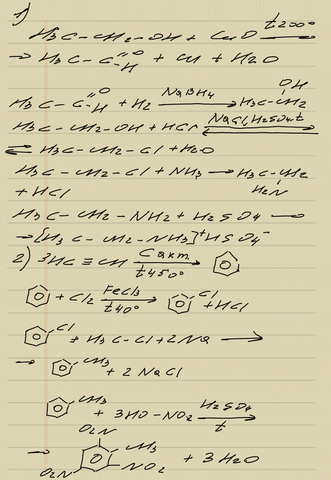 1)
H3C-CH2-OH + CuO t200°
→ H3C-C=O-H + Cu + H2O
OH
H3C-C=O-H + H2 NaBH4 → H3C-CH2
H3C-CH2-OH + HCl NaCl, H2SO4, t
⇌ H3C-CH2-Cl + H2O
H3C-CH2-Cl + NH3 → H3C-CH2
+ HCl H2N
H3C-CH2-NH2 + H2SO4 →
→ [H3C-CH2-NH3]+HSO4-
2) 3HC≡CH Сакт. t450° →
+ Cl2 FeCl3 t40° → Cl + HCl
Cl + H3C-Cl + 2Na →
→ CH3 + 2NaCl
CH3 + 3HO-NO2 H2SO4 t →
O2N
→ CH3 + 3H2O
O2N NO2